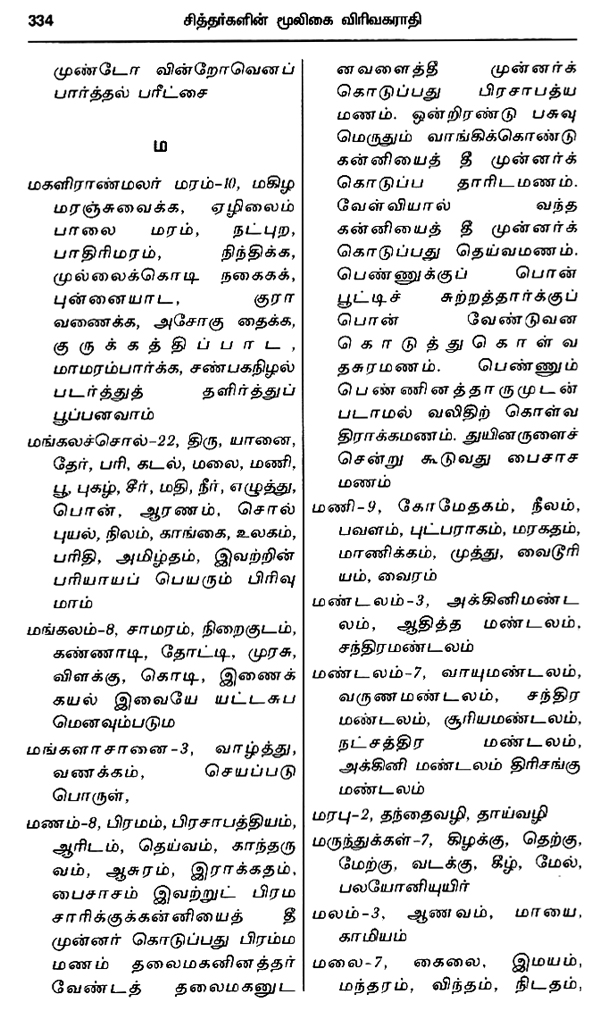 334
சித்தர்களின் மூலிகை விரிவகராதி
முண்டோ வின்றோவெனப்
பார்த்தல் பரீட்சை
ம
மகளிராண்மலர் மரம்-10, மகிழ
மரஞ்சுவைக்க, ஏழிலைம்
பாலை மரம், நட்புற,
பாதிரிமரம், நிந்திக்க,
முல்லைக்கொடி நகைகக்,
புன்னையாட, குரா
வணைக்க, அசோகு தைக்க,
குருக்கத்திப்பாட,
மாமரம்பார்க்க, சண்பகநிழல்
படர்த்துத் தளிர்த்துப்
பூப்பனவாம்
மங்கலச்சொல்-22, திரு, யானை,
தேர், பரி, கடல், மலை, மணி,
பூ, புகழ், சீர், மதி, நீர், எழுத்து,
பொன், ஆரணம், சொல்
புயல், நிலம், காங்கை, உலகம்,
பரிதி, அமிழ்தம், இவற்றின்
பரியாயப் பெயரும் பிரிவு
மாம்
மங்கலம்-8, சாமரம், நிறைகுடம்,
கண்ணாடி, தோட்டி, முரசு,
விளக்கு, கொடி, இணைக்
கயல் இவையே யட்டசுப
மெனவும்படும
மங்களாசானை-3, வாழ்த்து,
வணக்கம், செயப்படு
பொருள்,
மணம்-8, பிரமம், பிரசாபத்தியம்,
ஆரிடம், தெய்வம், காந்தரு
வம், ஆசுரம், இராக்கதம்,
பைசாசம் இவற்றுட் பிரம
சாரிக்குக்கன்னியைத் தீ
முன்னர் கொடுப்பது பிரம்ம
மணம் தலைமகனினத்தர்
வேண்டத் தலைமகனுட
னவளைத்தீ முன்னர்க்
கொடுப்பது பிரசாபத்ய
மணம். ஒன்றிரண்டு பசுவு
மெருதும் வாங்கிக்கொண்டு
கன்னியைத் தீ முன்னர்க்
கொடுப்ப தாரிடமணம்.
வேள்வியால் வந்த
கன்னியைத் தீ முன்னர்க்
கொடுப்பது தெய்வமணம்.
பெண்ணுக்குப் பொன்
பூட்டிச் சுற்றத்தார்க்குப்
பொன் வேண்டுவன
கொடுத்துகொள்வ
தசுரமணம். பெண்ணும்
பெண்ணினத்தாருமுடன்
படாமல் வலிதிற் கொள்வ
திராக்கமணம். துயினருளைச்
சென்று கூடுவது பைசாச
மணம்
மணி-9, கோமேதகம், நீலம்,
பவளம், புட்பராகம், மரகதம்,
மாணிக்கம், முத்து, வைடூரி
யம், வைரம்
மண்டலம்-3, அக்கினிமண்ட
லம், ஆதித்த மண்டலம்,
சந்திரமண்டலம்
மண்டலம்-7, வாயுமண்டலம்,
வருணமண்டலம், சந்திர
மண்டலம், சூரியமண்டலம்,
நட்சத்திர மண்டலம்,
அக்கினி மண்டலம் திரிசங்கு
மண்டலம்
மரபு-2, தந்தைவழி, தாய்வழி
மருந்துக்கள்-7, கிழக்கு, தெற்கு,
மேற்கு, வடக்கு, கீழ், மேல்,
பலயோனியுயிர்
மலம்-3, ஆணவம், மாயை,
காமியம்
மலை-7, கைலை, இமயம்,
மந்தரம், விந்தம், நிடதம்,